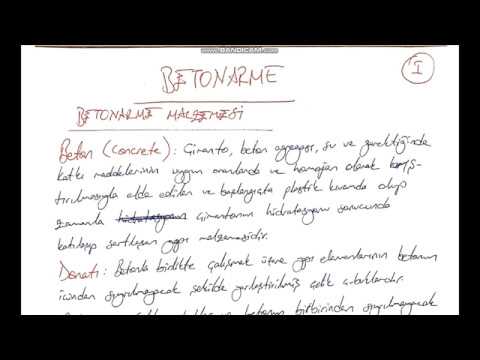 www.BANDICAM.com
I
BETONARME
BETONARME MALZEMESİ
Beton (Concrete): Çimento, beton agregası, su ve gerektiğinde
katkı maddelerinin uygun oranlarda ve homojen olarak karış-
tırılmasıyla elde edilen ve başlangıçta plastik kıvamda olup
zamanla hidratasyon çimentonun hidratasyonu sonucunda
katılaşıp sertleşen yapı malzemesidir.
Donatı: Betonla birlikte çalışmak üzere yapı elemanlarının betonun
içinden sıyrılmayacak şekilde yerleştirilmiş çelik çubuklardır.
ve betonun birbirinden sıyrılmayacak